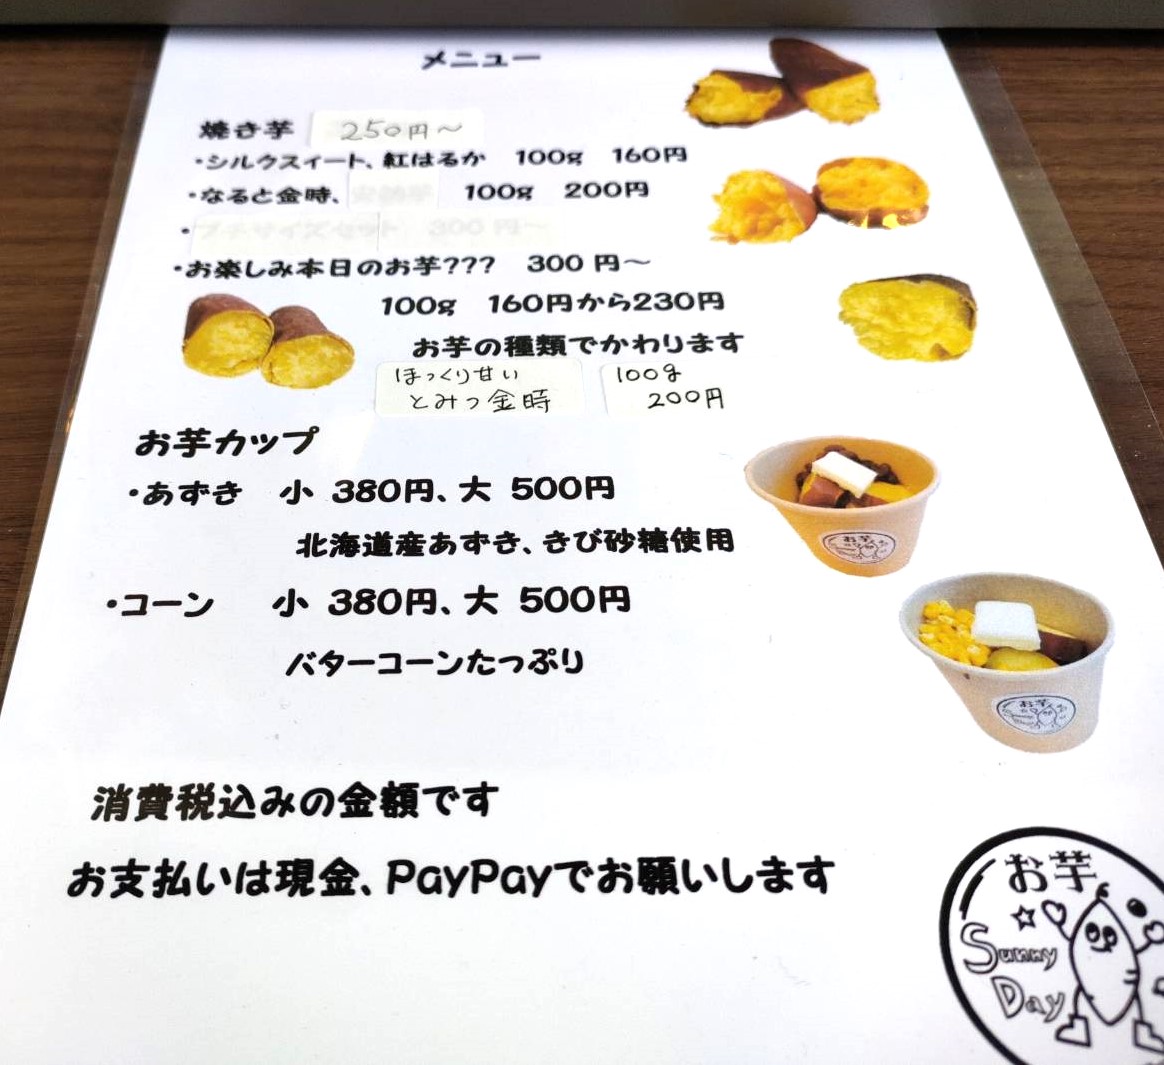 メニュー
焼き芋 250円〜
・シルクスイート、紅はるか 100g 160円
・なると金時、安納芋 100g 200円
・プチサイズセット 300円〜
・お楽しみ本日のお芋??? 300円〜
100g 160円から230円
お芋の種類でかわります
ほっくり甘い 100g
とみつ金時 200円
お芋カップ
・あずき 小 380円、大 500円
北海道産あずき、きび砂糖使用
・コーン 小 380円、大 500円
バターコーンたっぷり
消費税込みの金額です
お支払いは現金、PayPayでお願いします
お芋
Sunny
Day